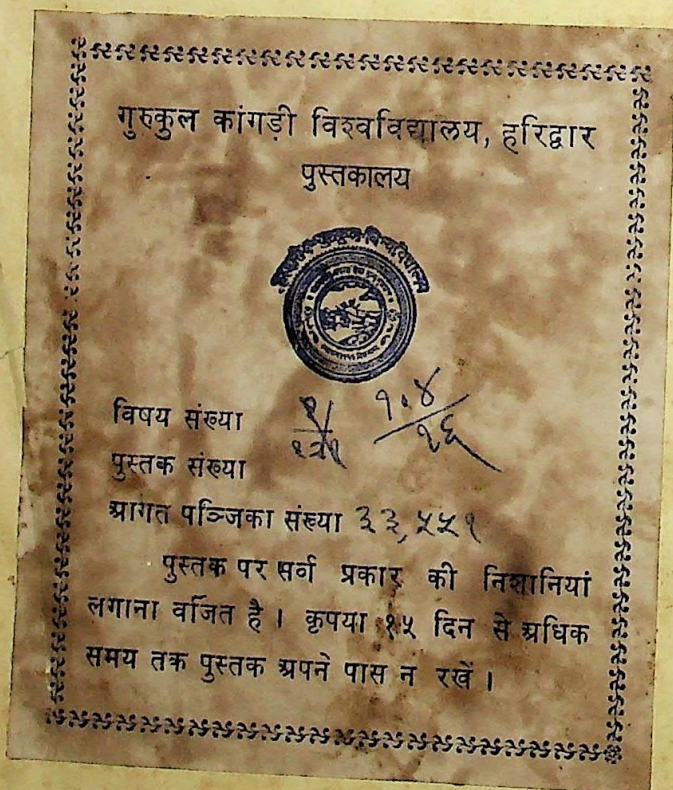 गुरुकुल कांगड़ी विश्वविद्यालय, हरिद्वार
पुस्तकालय
विषय संख्या १०४/१६
पुस्तक संख्या
आगत पञ्जिका संख्या ३३,५५१
पुस्तक पर सर्व प्रकार की निशानियां
लगाना वर्जित है। कृपया १५ दिन से अधिक
समय तक पुस्तक अपने पास न रखें।